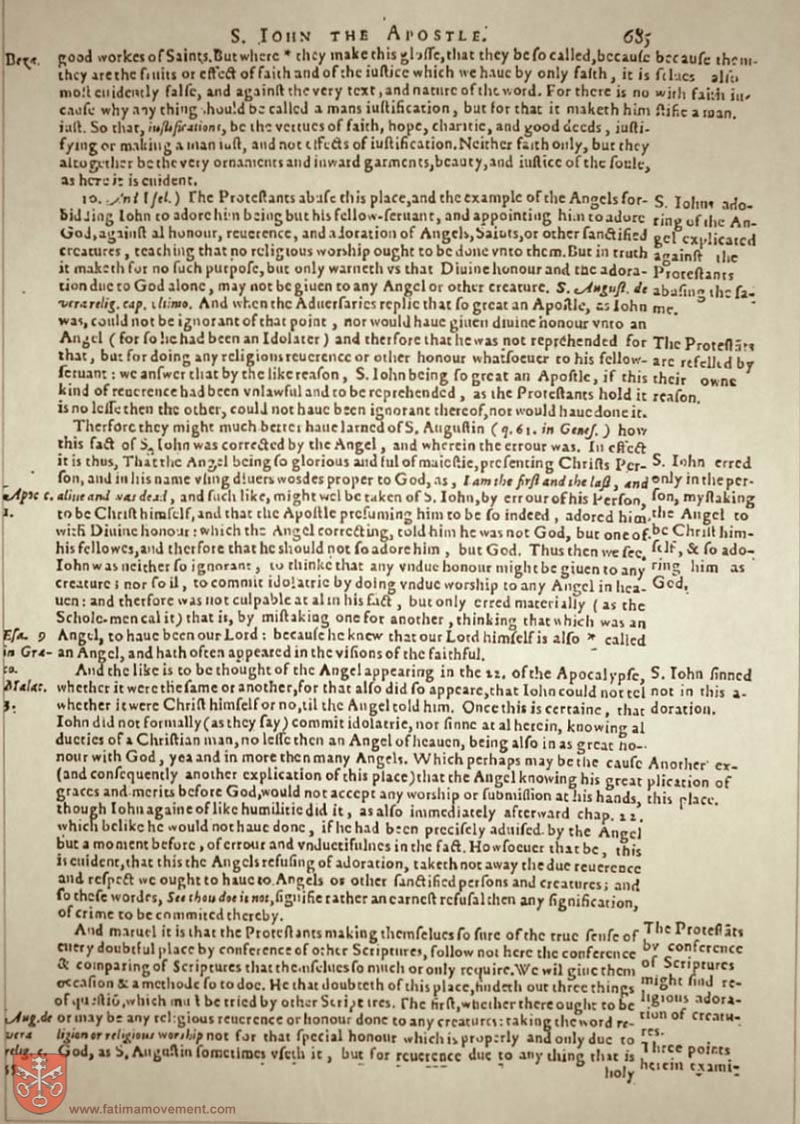 S. IOHN THE APOSTLE.
685
good workes of Saints. But where * they make this gloſſe, that they be ſo called, becauſe
they are the fruits or effect of faith and of the iuſtice which we haue by only faith, it is
moſt euidently falſe, and againſt the very text, and nature of the word. For there is no
cauſe why any thing ſhould be called a mans iuſtification, but for that it maketh him
iuſt. So that, iuſtifications, be the vertues of faith, hope, charitie, and good deeds, iuſti-
fying or making a man iuſt, and not effects of iuſtification. Neither faith only, but they
altogether be the very ornaments and inward garments, beauty, and iuſtice of the ſoule,
as here it is euident.
10. And I fel.) The Proteſtants abuſe this place, and the example of the Angels for-
bidding Iohn to adore him being but his fellow-ſeruant, and appointing him to adore
God, againſt al honour, reuerence, and adoration of Angels, Saints, or other ſanctified
creatures, teaching that no religious worship ought to be done vnto them. But in truth
it maketh for no ſuch purpoſe, but only warneth vs that Diuine honour and the adora-
tion due to God alone, may not be giuen to any Angel or other creature. S. Auguſt. de
vera relig. cap. vltimo. And when the Aduerſaries replie that ſo great an Apoſtle, as Iohn
was, could not be ignorant of that point, nor would haue giuen diuine honour vnto an
Angel (for ſo he had been an Idolater) and therfore that he was not reprehended for
that, but for doing any religious reuerence or other honour whatſoeuer to his fellow-
ſeruant: we anſwer that by the like reaſon, S. Iohn being ſo great an Apoſtle, if this
kind of reuerence had been vnlawful and to be reprehended, as the Proteſtants hold it
is no leſſe then the other, could not haue been ignorant thereof, nor would haue done it.
Therfore they might much better haue larned of S. Auguſtin (q. 61. in Geneſ.) how
this fact of S. Iohn was corrected by the Angel, and wherein the errour was. In effect
it is thus, That the Angel being ſo glorious and ful of maieſtie, preſenting Chriſts Per-
ſon, and in his name vſing diuers wordes proper to God, as, I am the firſt and the laſt, and
aliue and was dead, and ſuch like, might wel be taken of S. Iohn, by errour of his Perſon,
to be Chriſt himſelf, and that the Apoſtle preſuming him to be ſo indeed, adored him
with Diuine honour: which the Angel correcting, told him he was not God, but one of
his fellowes, and therfore that he should not ſo adore him, but God. Thus then we ſee,
Iohn was neither ſo ignorant, to thinke that any vndue honour might be giuen to any
creature; nor ſo il, to commit idolatrie by doing vndue worship to any Angel in hea-
uen: and therfore was not culpable at al in his fact, but only erred materially (as the
Schole-men cal it) that is, by miſtaking one for another, thinking that which was an
Angel, to haue been our Lord: becauſe he knew that our Lord himſelf is alſo * called
an Angel, and hath often appeared in the viſions of the faithful.
And the like is to be thought of the Angel appearing in the 22. of the Apocalypſe,
whether it were the ſame or another, for that alſo did ſo appeare, that Iohn could not tel
whether it were Chriſt himſelf or no, til the Angel told him. Once this is certaine, that
Iohn did not formally (as they ſay) commit idolatrie, nor ſinne at al herein, knowing al
dueties of a Chriſtian man, no leſſe then an Angel of heauen, being alſo in as great ho-
nour with God, yea and in more then many Angels. Which perhaps may be the cauſe
(and conſequently another explication of this place) that the Angel knowing his great
graces and merits before God, would not accept any worship or ſubmiſſion at his hands,
though Iohn againe of like humilitie did it, as alſo immediately afterward chap. 22.
which belike he would not haue done, if he had been preciſely aduiſed by the Angel
but a moment before, of errour and vnduetifulnes in the fact. Howſoeuer that be, this
is euident, that this the Angels refuſing of adoration, taketh not away the due reuerence
and reſpect we ought to haue to Angels or other ſanctified perſons and creatures; and
ſo theſe wordes, See thou doe it not, ſignifie rather an earneſt refuſal then any ſignification,
of crime to be commited thereby.
And maruel it is that the Proteſtants making themſelues ſo ſure of the true ſenſe of
euery doubtful place by conference of other Scriptures, follow not here the conference
& comparing of Scriptures that themſelues ſo much or only require. We wil giue them
occaſion & a methode ſo to doe. He that doubteth of this place, findeth out three things
of queſtiō, which muſt be tried by other Scriptures. The firſt, whether there ought to be
or may be any religious reuerence or honour done to any creatures: taking the word re-
ligion or religious worship not for that ſpecial honour which is properly and only due to
God, as S. Auguſtin ſometimes vſeth it, but for reuerence due to any thing that is
holy
Beza.
Apoc c.
1.
Eſa. 9
in Gra-
co.
Malac.
3.
Aug. de
vera
relig. c.
55.
becauſe them-
ſelues alſo
with faith iu-
ſtifie a man.
S. Iohns ado-
ring of the An-
gel explicated
againſt the
Proteſtants
abuſing the ſa-
me.
The Proteſtāts
are refelled by
their owne
reaſon.
S. Iohn erred
only in the per-
ſon, myſtaking
the Angel to
be Chriſt him-
ſelf, & ſo ado-
ring him as
God.
S. Iohn ſinned
not in this a-
doration.
Another ex-
plication of
this place.
The Proteſtāts
by conference
of Scriptures
might find re-
ligious adora-
tion of creatu-
res.
Three points
herein exami-
www.fatimamovement.com